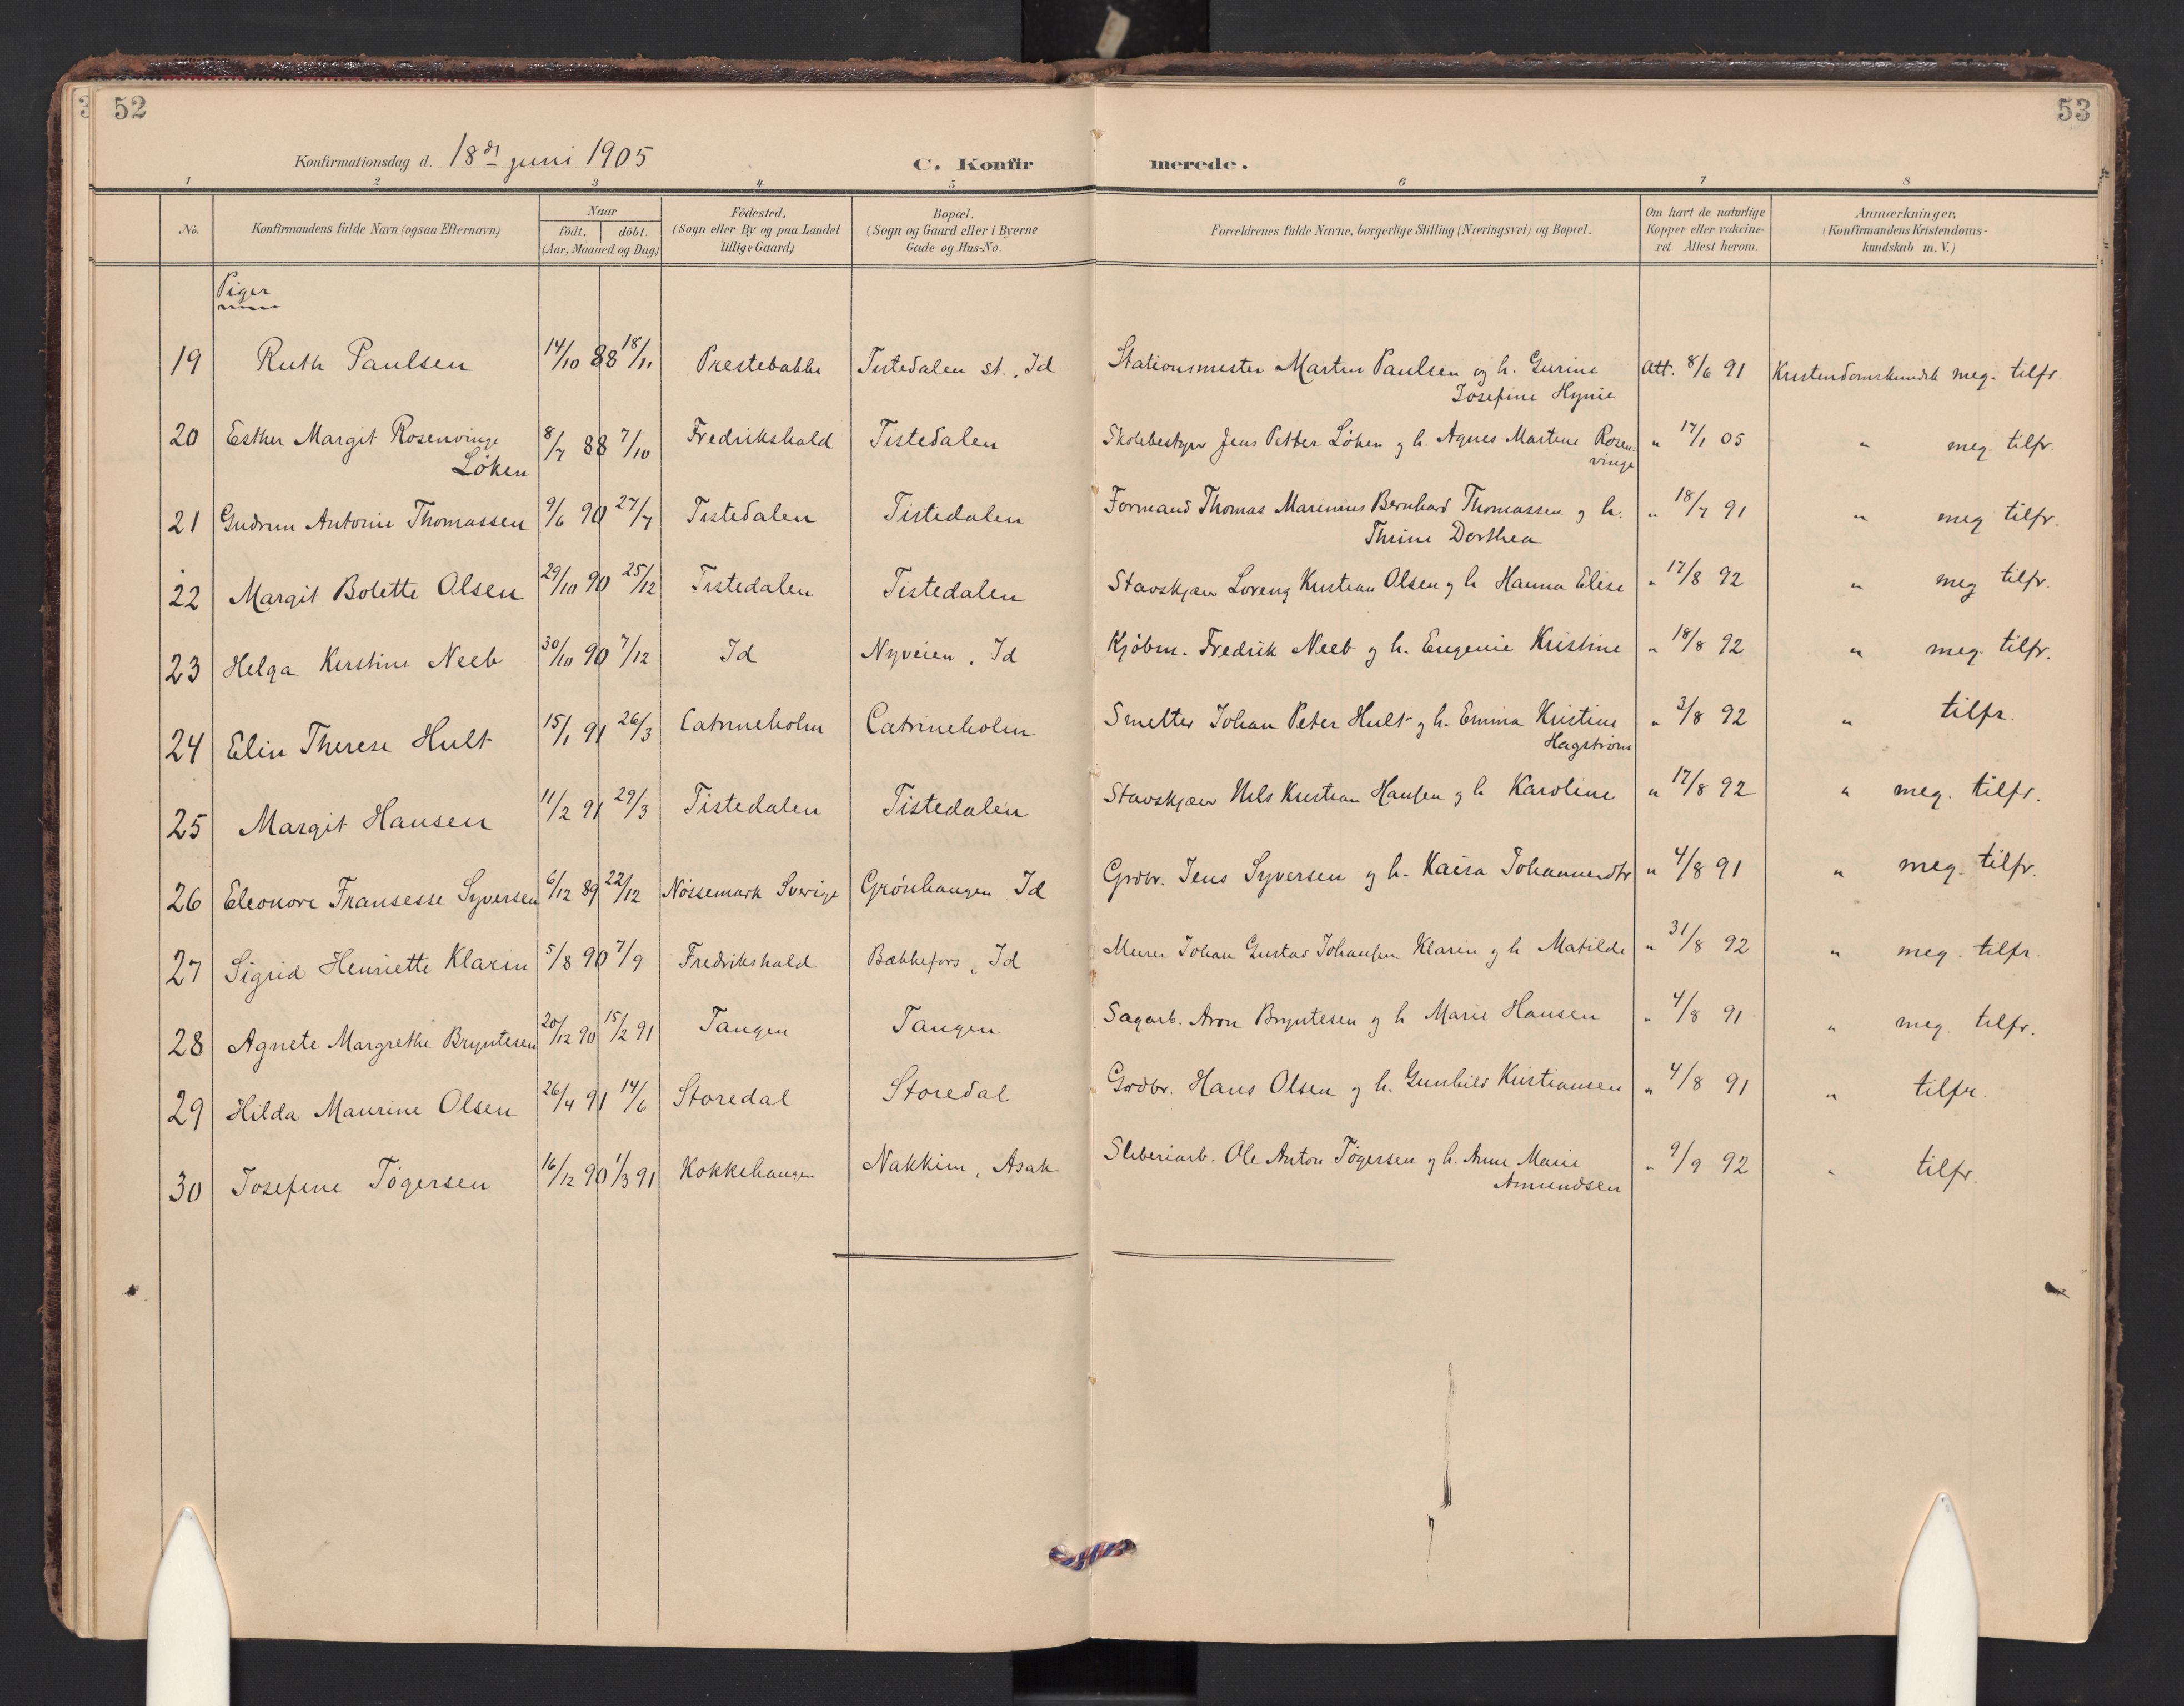 52
53
Konfirmationsdag d. 18de juni 1905
C. Konfir merede.
1 2 3 4 5 6 7 8
No. | Konfirmandens fulde Navn (ogsaa Efternavn) | Naar födt. döbt. (Aar, Maaned og Dag) | Födested. (Sogn eller By og paa Landet tillige Gaard) | Bopæl. (Sogn og Gaard eller i Byerne Gade og Hus-No. | Forældrenes fulde Navne, borgerlige Stilling (Næringsvei) og Bopæl. | Om havt de naturlige Kopper eller vakcineret Attest herom. | Anmærkninger. (Konfirmandens Kristendomskundskab m. V.)
Piger
19 Ruth Paulsen 14/10 88 18/11 Prestebakke Tistedalen st., Id Stationsmester Martin Paulsen og h. Gurine Josefine Hynie Att. 8/6 91 Kristendomskundsk meg. tilfr
20 Esther Margit Rosenvinge Löken 8/7 88 7/10 Fredrikshald Tistedalen Skolebestyrer Jens Petter Löken og h. Agnes Martine Rosenvinge " 17/1 05 " meg. tilfr.
21 Gudrun Antonie Thomassen 9/6 90 27/7 Tistedalen Tistedalen Formand Thomas Marinius Bernhard Thomassen og h. Thrine Dorthea " 18/7 91 " meg tilfr.
22 Margit Bolette Olsen 29/10 90 25/12 Tistedalen Tistedalen Stavskjær Loreng Kristian Olsen og h Hanna Elise " 17/8 92 " meg tilfr.
23 Helga Kirstine Neeb 30/10 90 7/12 Id Nyveien, Id Kjöbm. Fredrik Neeb og h. Eugenie Kristine " 18/8 92 " meg. tilfr.
24 Elin Therese Hult 15/1 91 26/3 Catrineholm Catrineholm Smelter Johan Peter Hult og h. Emma Kristine Hagström " 3/8 92 " tilfr.
25 Margit Hansen 11/2 91 29/3 Tistedalen Tistedalen Stavskjær Nils Kristian Hansen og h Karoline " 17/8 92 " meg. tilfr.
26 Eleonore Fransesse Syversen 6/12 89 22/12 Nössemark Sverige Grönhaugen Id Grdbr. Jens Syversen og h. Kaisa Johannesdtr " 4/8 91 " meg. tilfr.
27 Sigrid Henriette Klarin 5/8 90 7/9 Fredrikshald Bækkefors, Id Murer Johan Gustav Johansen Klarin og h Matilde " 31/8 92 " meg. tilfr.
28 Agnete Margrethe Bryntesen 20/12 90 15/2 91 Tangen Tangen Sagarb. Aron Bryntesen og h Marie Hansen " 4/8 91 " meg tilfr.
29 Hilda Maurine Olsen 26/4 91 14/6 Storedal Storedal Grdbr. Hans Olsen og h. Gunhild Kristiansen " 4/8 91 " tilfr.
30 Josefine Tögersen 16/12 90 1/3 91 Kokkehaugen Nakkim, Asak Sliberiarb. Ole Anton Tögersen og h. Anne Marie Amundsen " 9/9 92 " tilfr.